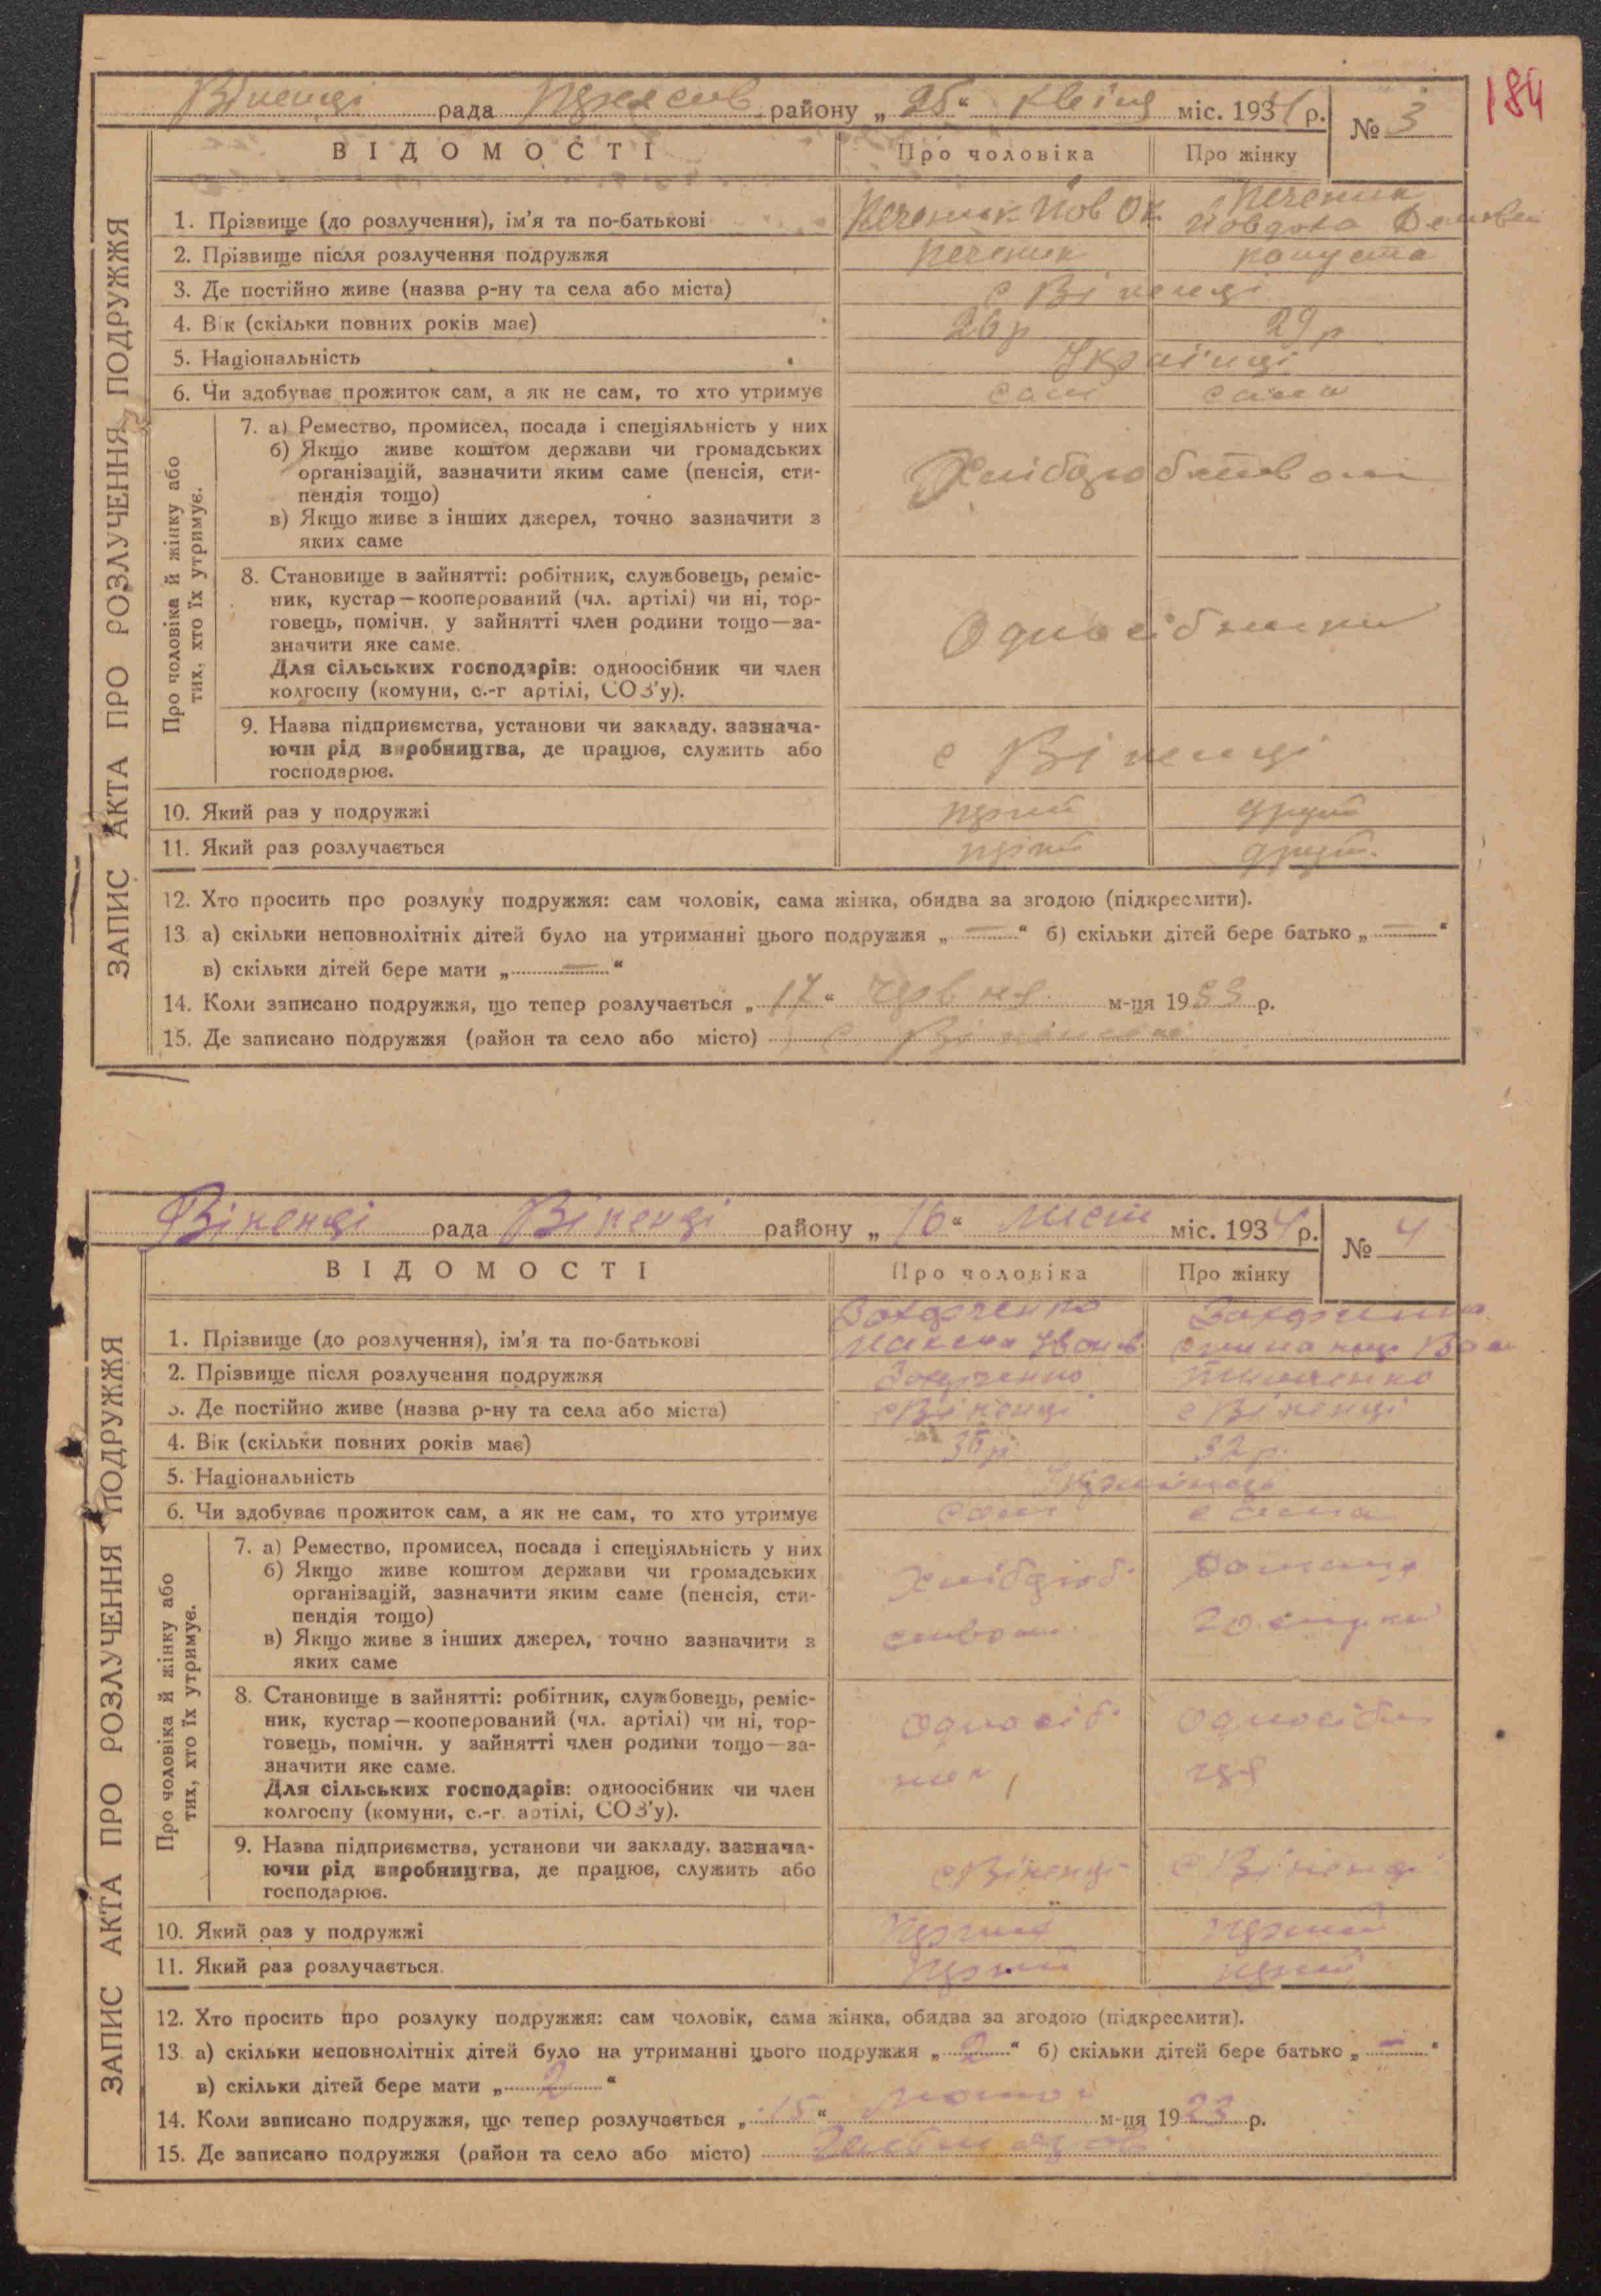 184
Віненці рада району „25“ квітня міс. 1934 р. № 3
ВІДОМОСТІ Про чоловіка Про жінку
ЗАПИС АКТА ПРО РОЗЛУЧЕННЯ ПОДРУЖЖЯ
Печеник
1. Прізвище (до розлучення), ім'я та по-батькові Печеник Йов Ок
2. Прізвище після розлучення подружжя Печеник капуста
3. Де постійно живе (назва р-ну та села або міста) с Віненці
4. Вік (скільки повних років має) 26 р 29 р
5. Національність Українці
6. Чи здобуває прожиток сам, а як не сам, то хто утримує сам сама
Про чоловіка й жінку або
тих, хто їх утримує.
7. а) Ремество, промисел, посада і спеціяльність у них
б) Якщо живе коштом держави чи громадських
організацій, зазначити яким саме (пенсія, сти-
пендія тощо)
в) Якщо живе з інших джерел, точно зазначити з
яких саме
Хліборобством
8. Становище в зайнятті: робітник, службовець, реміс-
ник, кустар—кооперований (чл. артілі) чи ні, тор-
говець, помічн. у зайнятті член родини тощо—за-
значити яке саме.
Для сільських господарів: одноосібник чи член
колгоспу (комуни, с.-г артілі, СОЗ'у).
Одноосібники
9. Назва підприємства, установи чи закладу, зазнача-
ючи рід виробництва, де працює, служить або
господарює.
с Віненці
10. Який раз у подружжі перший другий
11. Який раз розлучається перший другий
12. Хто просить про розлуку подружжя: сам чоловік, сама жінка, обидва за згодою (підкреслити).
13. а) скільки неповнолітніх дітей було на утриманні цього подружжя „ — “ б) скільки дітей бере батько „ — “
в) скільки дітей бере мати „ — “
14. Коли записано подружжя, що тепер розлучається „17“ червня м-ця 1933 р.
15. Де записано подружжя (район та село або місто) с
Віненці рада Віненці району „16“ лист міс. 1934 р. № 4
ВІДОМОСТІ Про чоловіка Про жінку
ЗАПИС АКТА ПРО РОЗЛУЧЕННЯ ПОДРУЖЖЯ
1. Прізвище (до розлучення), ім'я та по-батькові Максим Іванов
2. Прізвище після розлучення подружжя
3. Де постійно живе (назва р-ну та села або міста) с Віненці с Віненці
4. Вік (скільки повних років має) 32 р.
5. Національність Українці
6. Чи здобуває прожиток сам, а як не сам, то хто утримує сам сама
Про чоловіка й жінку або
тих, хто їх утримує.
7. а) Ремество, промисел, посада і спеціяльність у них
б) Якщо живе коштом держави чи громадських
організацій, зазначити яким саме (пенсія, сти-
пендія тощо)
в) Якщо живе з інших джерел, точно зазначити з
яких саме
Хлібороб
ством
8. Становище в зайнятті: робітник, службовець, реміс-
ник, кустар—кооперований (чл. артілі) чи ні, тор-
говець, помічн. у зайнятті член родини тощо—за-
значити яке саме.
Для сільських господарів: одноосібник чи член
колгоспу (комуни, с.-г. артілі, СОЗ'у).
односіб
ник
9. Назва підприємства, установи чи закладу, зазнача-
ючи рід виробництва, де працює, служить або
господарює.
с Віненці с Віненці
10. Який раз у подружжі перший перший
11. Який раз розлучається. перший перший
12. Хто просить про розлуку подружжя: сам чоловік, сама жінка, обидва за згодою (підкреслити).
13. а) скільки неповнолітніх дітей було на утриманні цього подружжя „ 2 “ б) скільки дітей бере батько „ — “
в) скільки дітей бере мати „ 2 “
14. Коли записано подружжя, що тепер розлучається „15“ м-ця 1923 р.
15. Де записано подружжя (район та село або місто)